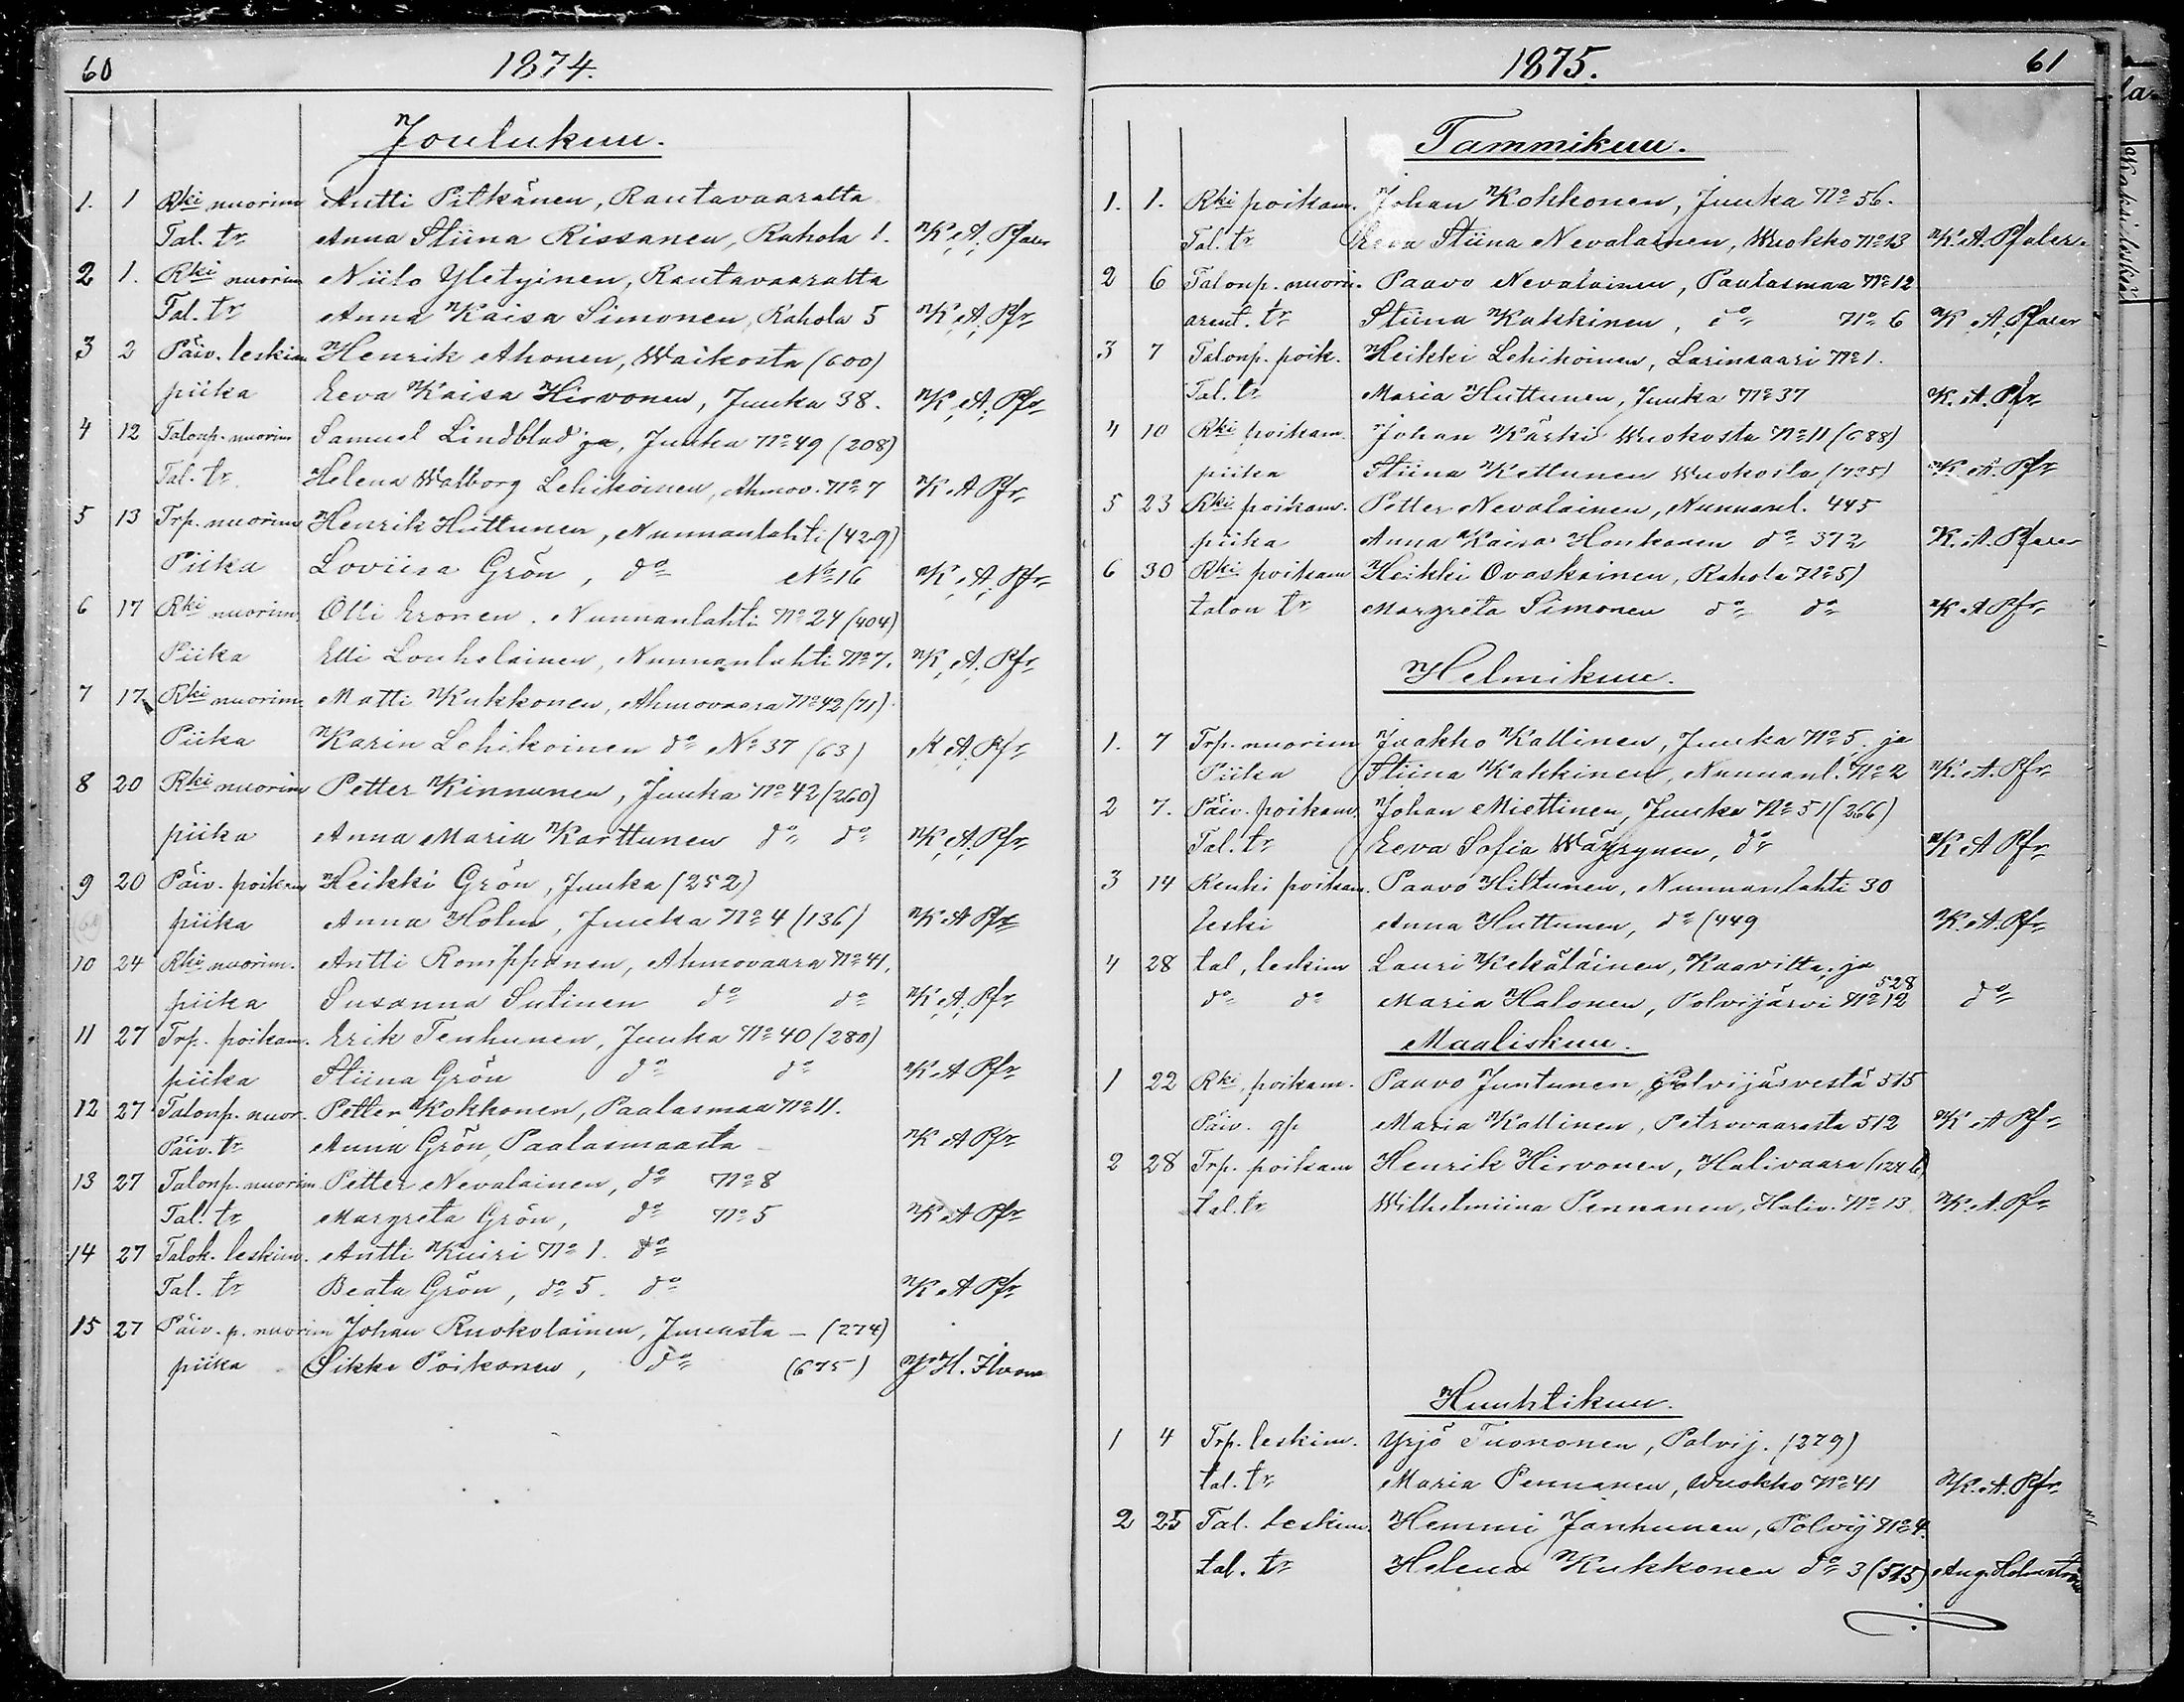 60
1874.
Joulukuu.
1. 1 Rki nuorim. Antti Pitkänen, Rautavaaralta
Tal. tr Anna Stiina Rissanen, Rahola 1. K. A. Pfaler
2 1. Rki nuorim Niilo Yletyinen, Rautavaaralta
Tal. tr Anna Kaisa Simonen, Rahola 5 K. A. Pfr
3 2 Päiv. leskim. Henrik Ahonen, Waikosta (600)
piika Eeva Kaisa Hirvonen, Juuka 38. K. A. Pfr
4 12 Talonp. nuorim Samuel Lindblad ja, Juuka No 49 (208)
Tal. tr. Helena Walborg Lehikoinen, Ahmov. No 7 K A Pfr
5 13 Trp. nuorim Henrik Huttunen, Nunnanlahti (429)
Piika Loviisa Grön, do No 16 K. A. Pfr
6 17 Rki nuorim. Olli Eronen. Nunnanlahti No 24 (404)
Piika Elli Louhelainen, Nunnanlahti No 7. K. A. Pfr
7 17 Rki nuorim. Matti Kukkonen, Ahmovaara No 42 (71)
Piika Karin Lehikoinen do No 37 (63) K A. Pfr
8 20 Rki nuorim Petter Kinnunen, Juuka No 42 (260)
piika Anna Maria Karttunen do do K. A. Pfr
9 20 Päiv. poikam Heikki Grön, Juuka (252)
piika Anna Holm, Juuka No 4 (136) K A Pfr
10 24 Rki nuorim. Antti Romppanen, Ahmovaara No 41.
piika Susanna Sutinen do do K. A. Pfr
11 27 Trp. poikam. Erik Tenhunen, Juuka No 40 (280)
piika Stiina Grön do do K A Pfr
12 27 Talonp. nuor. Petter Kokkonen, Paalasmaa No 11.
Päiv. tr Anna Grön, Paalasmaasta K A Pfr
13 27 Talonp. nuorim Petter Nevalainen, do No 8
Tal. tr Margreta Grön, do No 5 K A Pfr
14 27 Talok. leskim. Antti Kuiri No 1. do
Tal. tr Beata Grön, do 5. do K A Pfr
15 27 Päiv. p. nuorim Johan Ruokolainen, Juuasta - (274)
piika Sikke Poikonen, do (675)
1875.
61
Tammikuu.
1. 1. Rki poikam. Johan Kokkonen, Juuka No 56.
Tal. tr Eeva Stiina Nevalainen, Wuokko No 13 K. A. Pfaler
2 6 Talonp. nuori. Paavo Nevalainen, Paalasmaa No 12
arent. tr Stiina Kakkinen, do No 6 K A. Pfaler
3 7 Talonp. poik. Heikki Lehikoinen, Larinsaari No 1.
Tal. tr Maria Huttunen, Juuka No 37 K. A. Pfr
4 10 Rki poikam. Johan Kärki Wuokosta No 11 (688)
piika Stiina Kettunen Wuokosta (725) K. A. Pfr
5 23 Rki poikam. Petter Nevalainen, Nunnanl. 445
piika Anna Kaisa Honkanen do 372 K. A. Pfaler
6 30 Rki poikam Heikki Ovaskainen, Rahola No 5)
talon tr Margreta Simonen do do K A Pfr
Helmikuu.
1. 7 Trp. nuorim Jaakko Kallinen, Juuka No 5. ja
Piika Stiina Kakkinen, Nunnanl. No 2 K. A. Pfr
2 7. Päiv. poikam. Johan Miettinen, Juuka No 51 (266)
Tal. tr Eeva Sofia Wäyrynen, do K A Pfr
3 14 Renki poikam. Paavo Hiltunen, Nunnanlahti 30
leski Anna Huttunen, do (449 K. A. Pfr
4 28 tal. leskim Lauri Kekäläinen, Kaavilta, ja
528
do do Maria Halonen, Polvijärvi No 12 do
Maaliskuu.
1 22 Rki, poikam. Paavo Juntunen, Polvijärvestä 515
Päiv. Maria Kallinen, Petrovaarasta 512 K A Pfr
2 28 Trp. poikam Henrik Hirvonen, Halivaara
tal. tr Wilhelmiina Pennanen, Haliv. No 13 K. A. Pfr
Huuhtikuu.
1 4 Trp. leskim. Yrjö Tuononen, Polvij. (279)
tal. tr Maria Pennanen, Wuokko No 41 K. A. Pfr
2 25 Tal. leskim. Hemmi Janhunen, Polvij No 4.
tal. tr Helena Kukkonen do 3 (515) Aug. Holmström